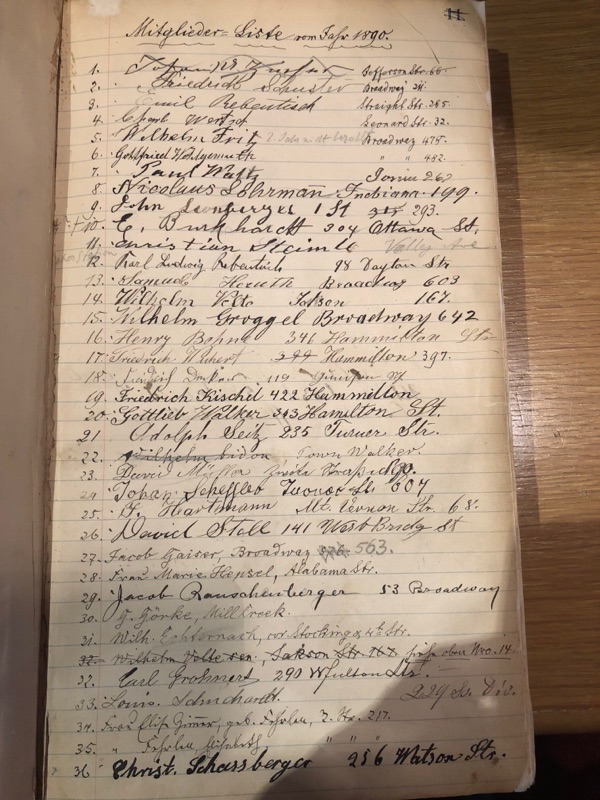 11
Mitglieder-Liste vom Jahr 1890.
1. Jefferson Str. 66.
2. Friedrich Schuster Broadway 211.
3. Emil Rebentisch Straight Str. 265
4. Leonard Str. 32.
5. Wilhelm Fritz Broadway 475.
6. Gottfried Wohlgemuth " " 482.
7. Paul Ionia 262
8. Nicolaus Lehrman Indiana 199.
9. John 1 St 293.
10. C. Burkhardt 304 Ottawa St.
11. Christian Steimle Vally Ave
12. Karl Ludwig Rebentisch 98 Dayton Str
13. Samuel Broadway 603
14. Wilhelm 167.
15. Wilhelm Groggel Broadway 642
16. Henry Bohne 346 Hammilton Str
17. Friedrich 244 Hammilton 397.
18. 119
19. Friedrich Kischel 422 Hammilton
20. Gottlieb Walker 343 Hamilton St.
21 Adolph Seitz 235 Turner Str.
22. Wilhelm Town Walker.
23. David Müller
24 Johan Scheffler 607
25. F. Hartmann Mt. Vernon Str. 68.
26. David Still 141 West Bridg St
27. Jacob Gaiser, Broadway 563.
28. Frau Marie Hensel, Alabama Str.
29. Jacob Rauschenberger 53 Broadway
30. G. Görke, Mill Creek.
31. Wilh. Echternach, vor Stocking & 4th Str.
32. Wilhelm Volte sen., Jakson Str. 167. oben Nro. 14.
32. Carl Grohnert 290 W fulton Str.
33. Louis Schuchardt. 229 So. Div.
34. Frau geb. 217.
35. " " " "
36 Christ. Schassberger 256 Watson Str.